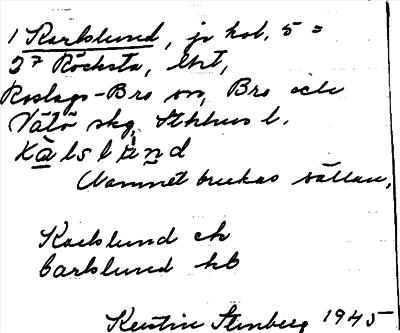 1 Karlslund, jr hot. 5 =
2⁷ Röcksta, Ekt,
Roslags-Bro sn, Bro och
Vätö skg, Sthlms l.
Kàlslùnd
Namnet brukas sällan,
Karlslund ek
Carlslund kb
Kerstin Stenberg 1945